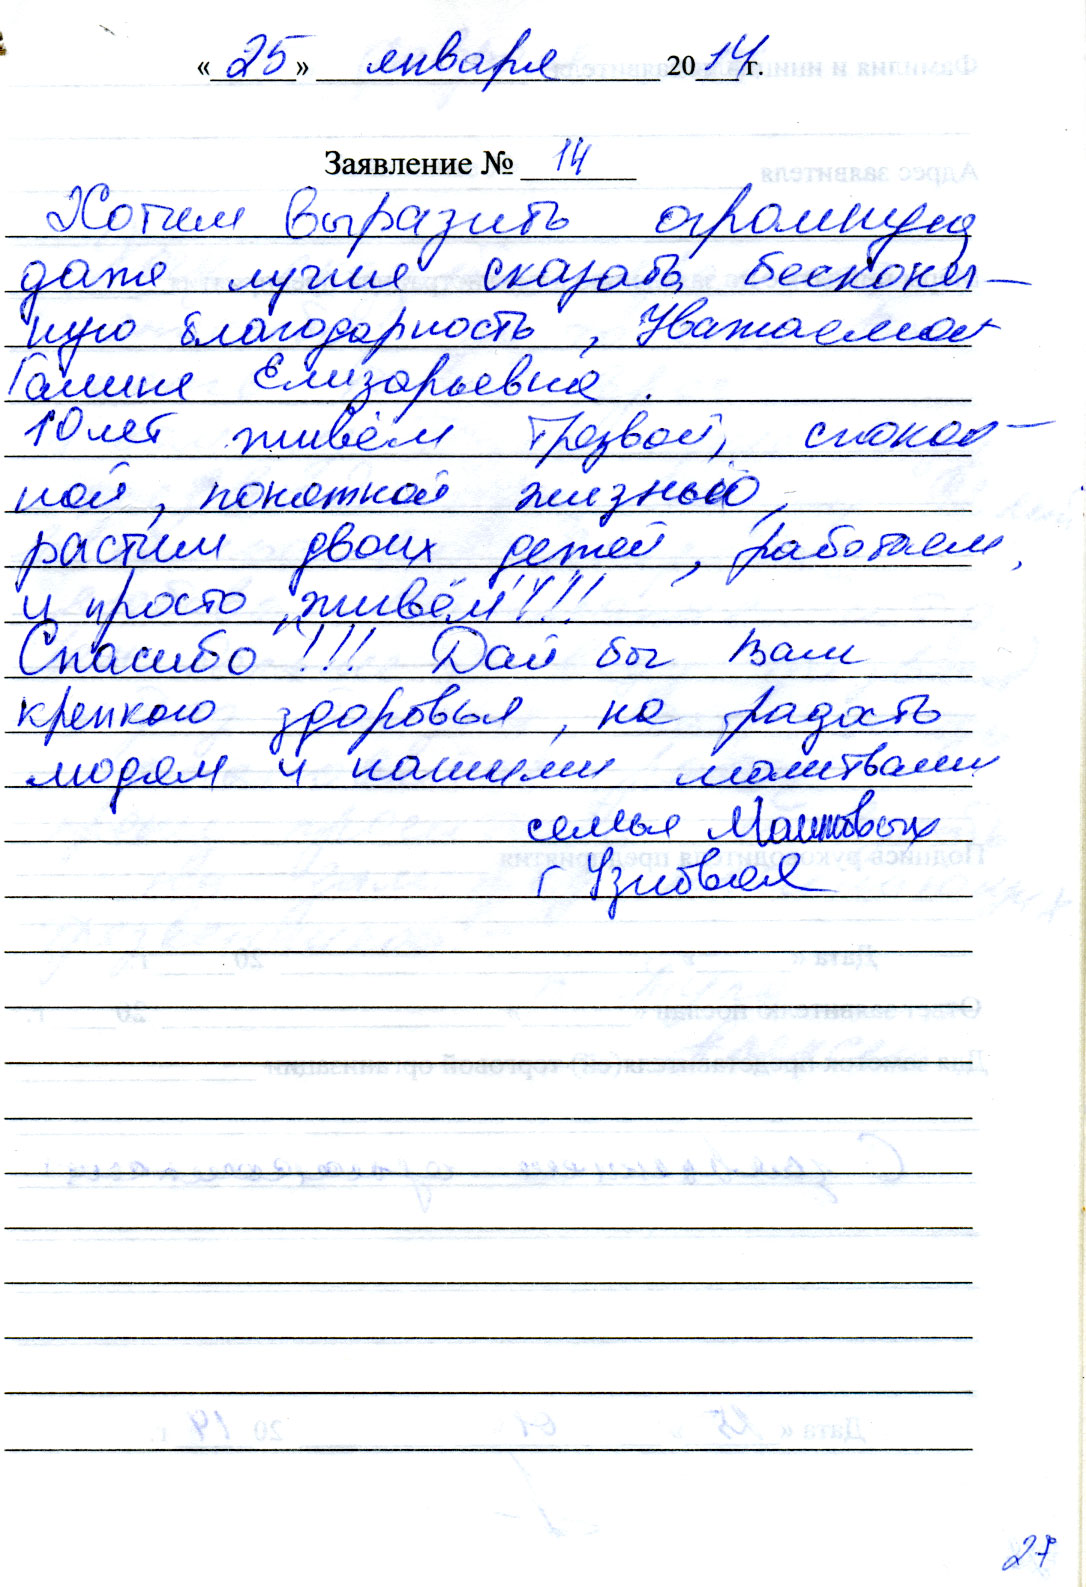 « 25 » января 2014 г.
Заявление № 14
Хотим выразить огромную
даже лучше сказать бесконеч-
ную благодарность, Уважаемой
Галине Елизарьевне.
10 лет живём трезвой, спокой-
ной, понятной жизнью,
растим двоих детей, работаем,
и просто живём!!!!
Спасибо!!! Дай бог Вам
крепкого здоровья, на радость
людям и нашими молитвами
семья
г Узловая
27